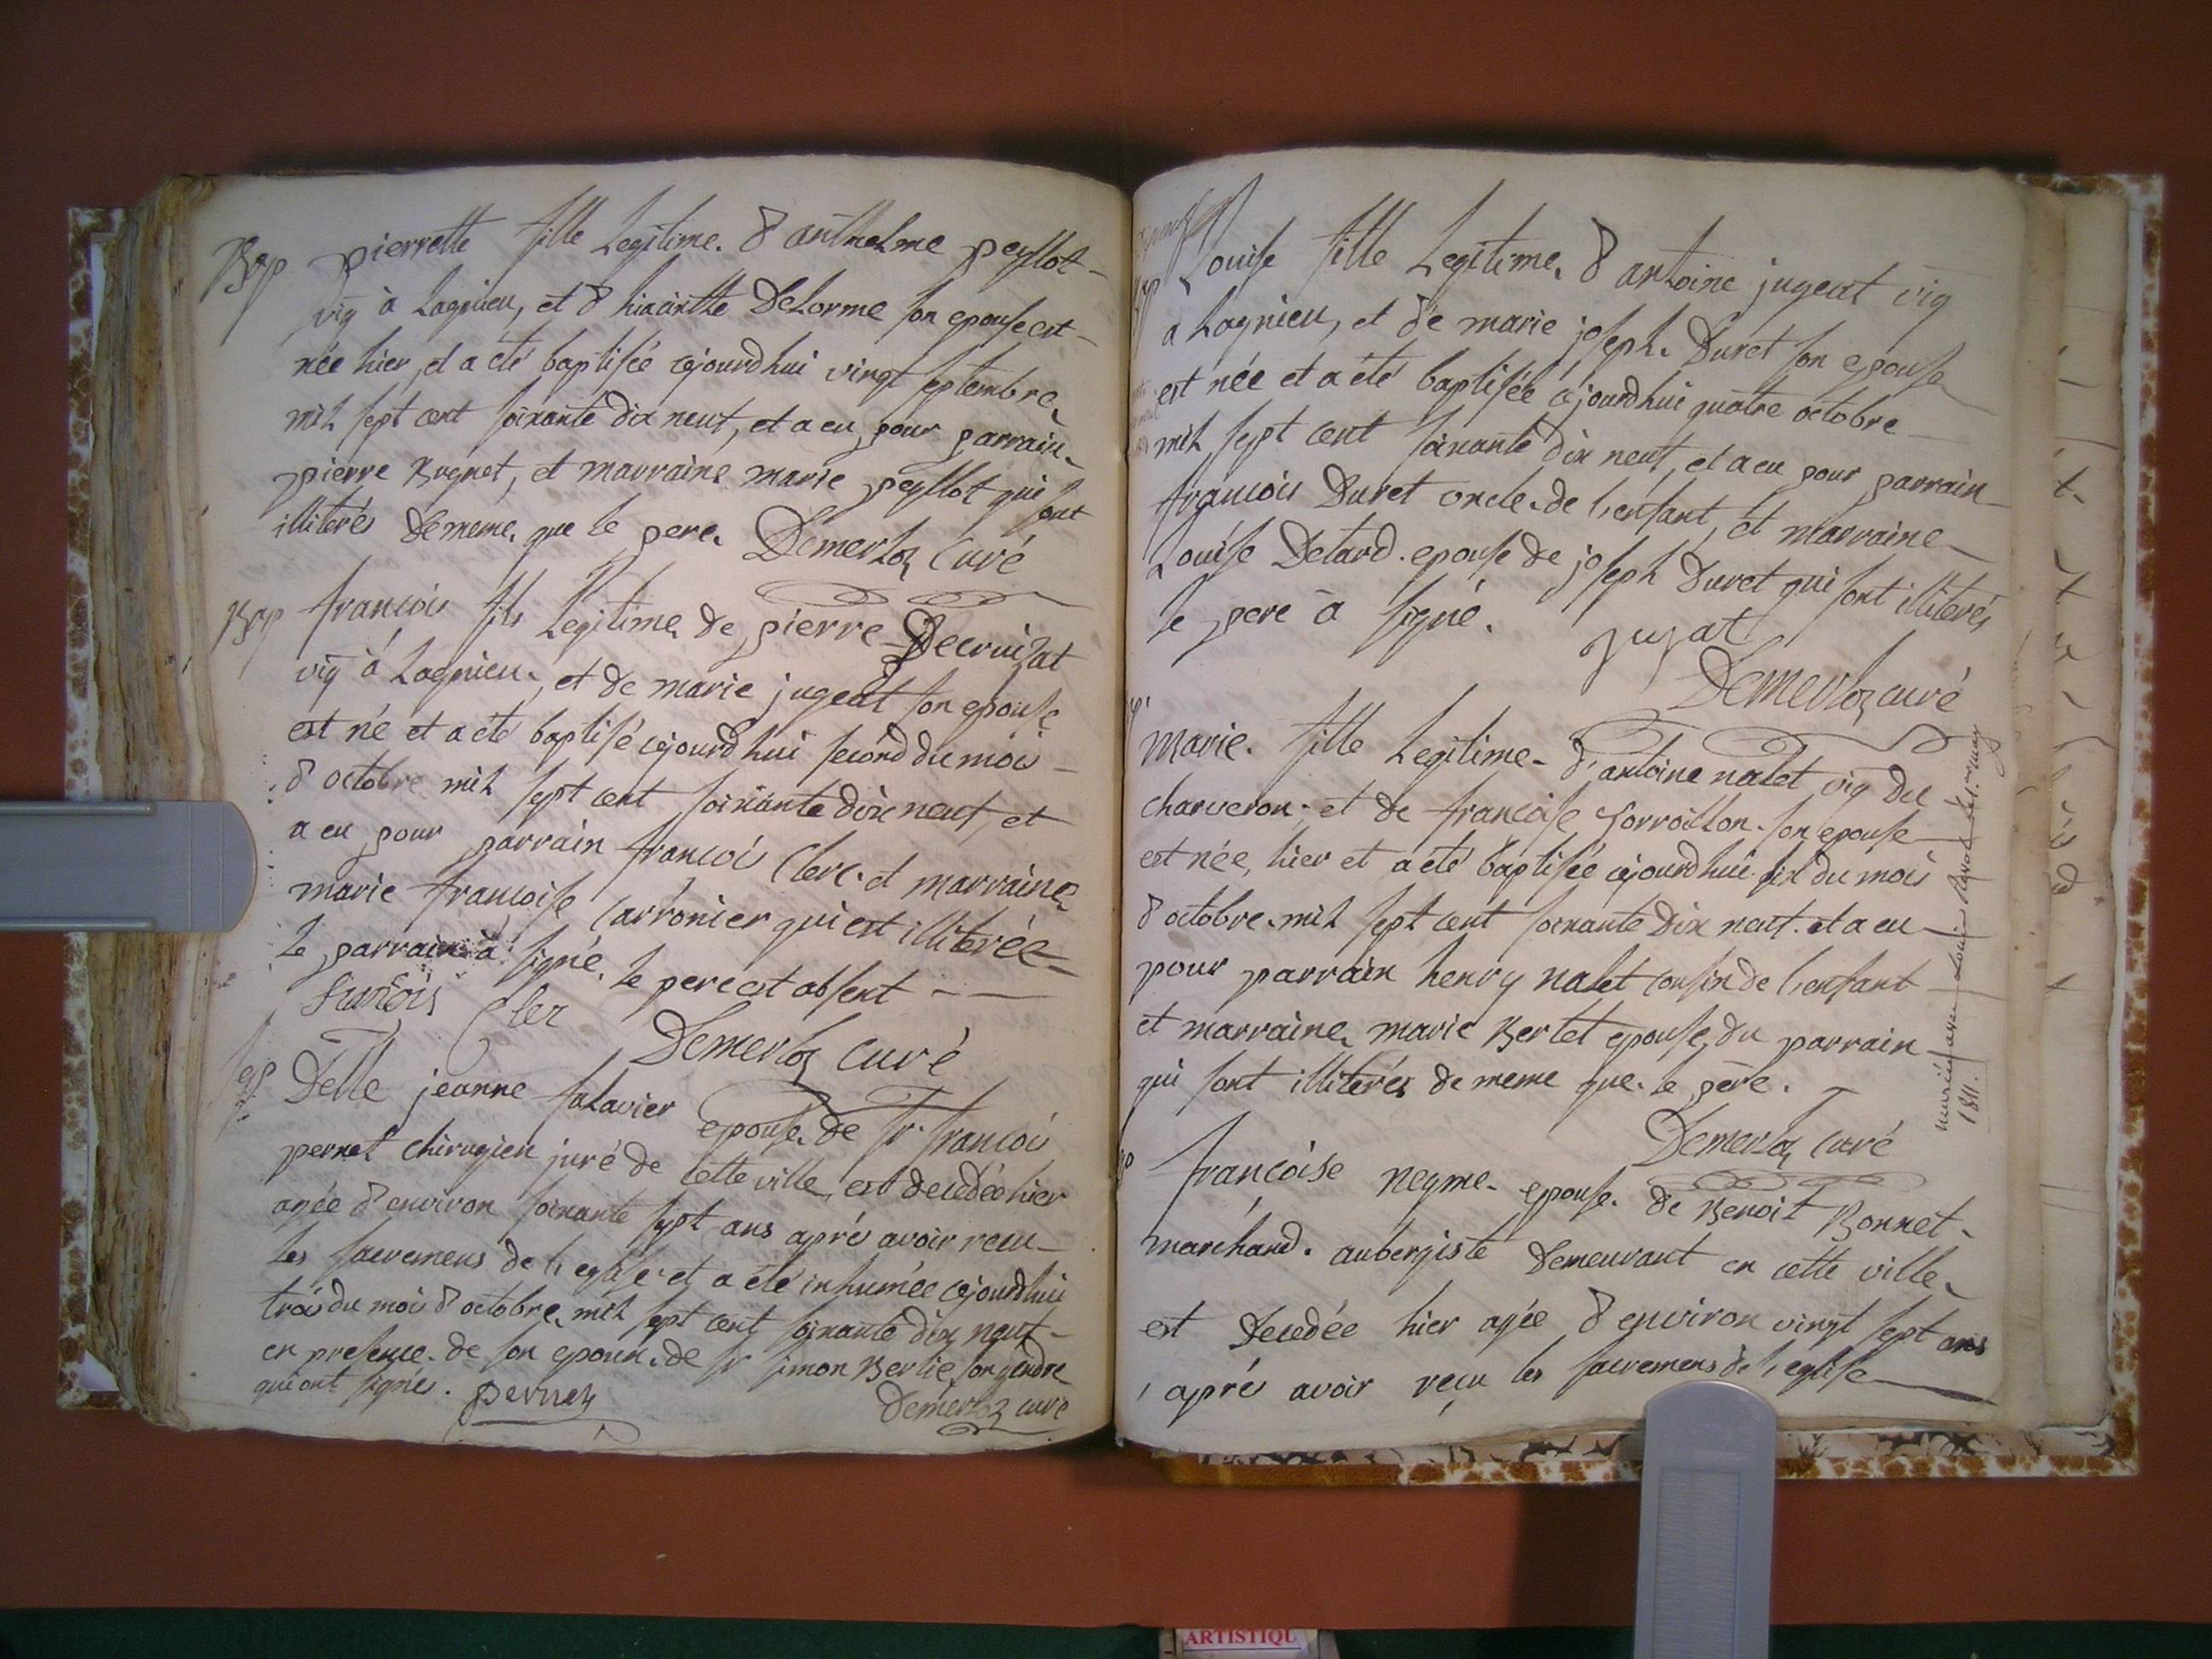 Bap pierrette fille Legitime. d anthelme peyssot
vig à Lagnieu, et d hiacinthe Delorme son epouse est
née hier, et a été baptisée cejourdhui vingt septembre
mil sept cent soixante dix neuf, et a eu pour parrain
pierre Bugnet, et marraine marie peyssot qui sont
illiterés dememe que le pere. Demerloz Curé
Bap francois fils Legitime de pierre Decruisat
vig à Lagnieu, et de marie jugeat son epouse
est né et a été baptisé cejourdhui second du mois
d octobre mil sept cent soixante dix neuf, et
a eu pour parrain francois Clerc et marraine
marie francoise Carronier qui est illiterée
Le parrain à signé. Le pere est absent
francois Cler
Demerloz Curé
sep Delle jeanne salavier epouse de sr francois
pernet chirugien juré de cette ville est decedée hier
agée d environ soixante sept ans aprés avoir recu
les sacremens de l'eglise et a été inhumée cejourdhui
trois du mois d octobre mil sept cent soixante dix neuf
en presence de son epoux de sr simon Berlie son gendre
qui ont signés. pernet
Demerloz curé
Bap Louise fille Legitime d antoine jugeat vig
a Lagnieu, et de marie joseph Duret son epouse
est née et a été baptisée cejourdhui quatre octobre
mil sept cent soixante dix neuf, et a eu pour parrain
francois Duret oncle de l'enfant, et marraine
Louise Detard epouse de joseph Duret qui sont illiterés
le pere à signé. jujat
Demerloz curé
marie fille Legitime d'antoine nalet vig du
charveron et de francoise son epouse
est née hier et a été baptisée cejourdhui six du mois
d octobre mil sept cent soixante dix neuf et a eu
pour parrain henry nalet cousin de l'enfant
et marraine marie Bertet epouse du parrain
qui sont illiterés de meme que le père.
Demerloz Curé
mariée avec Louis le 1er may
1811.
francoise neyme epouse de Benoit Bonnet
marchand aubergiste Demeurant en cette ville
est decedée hier agée d environ vingt sept ans
aprés avoir reçu les sacremens de l'eglise
ARTISTIQU